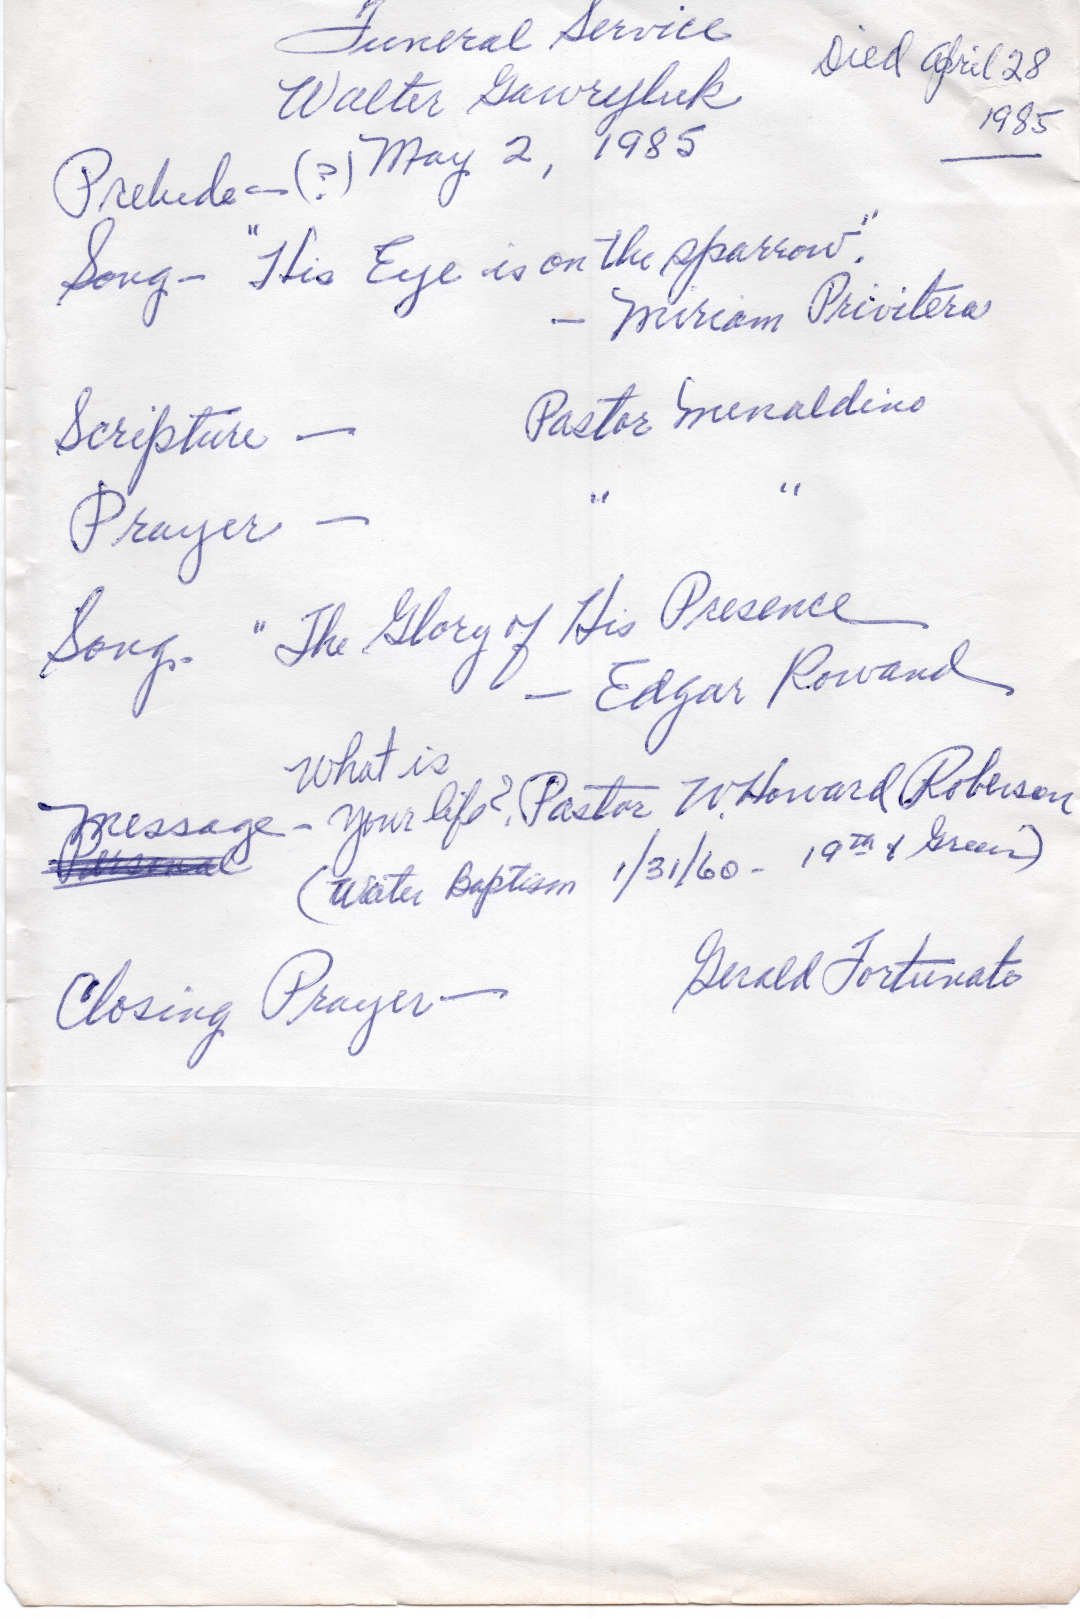 Funeral Service
Died April 28
1985
Walter Gawryluk
May 2, 1985
Prelude - (?)
Song - "His Eye is on the sparrow".
- Miriam Privitera
Scripture - Pastor Menaldino
Prayer - " "
Song. "The Glory of His Presence
- Edgar Rowand
What is
Message - your life?, Pastor W. Howard Roberson
Personal
(Water Baptism 1/31/60 - 19th & Green)
Closing Prayer - Gerald Fortunato